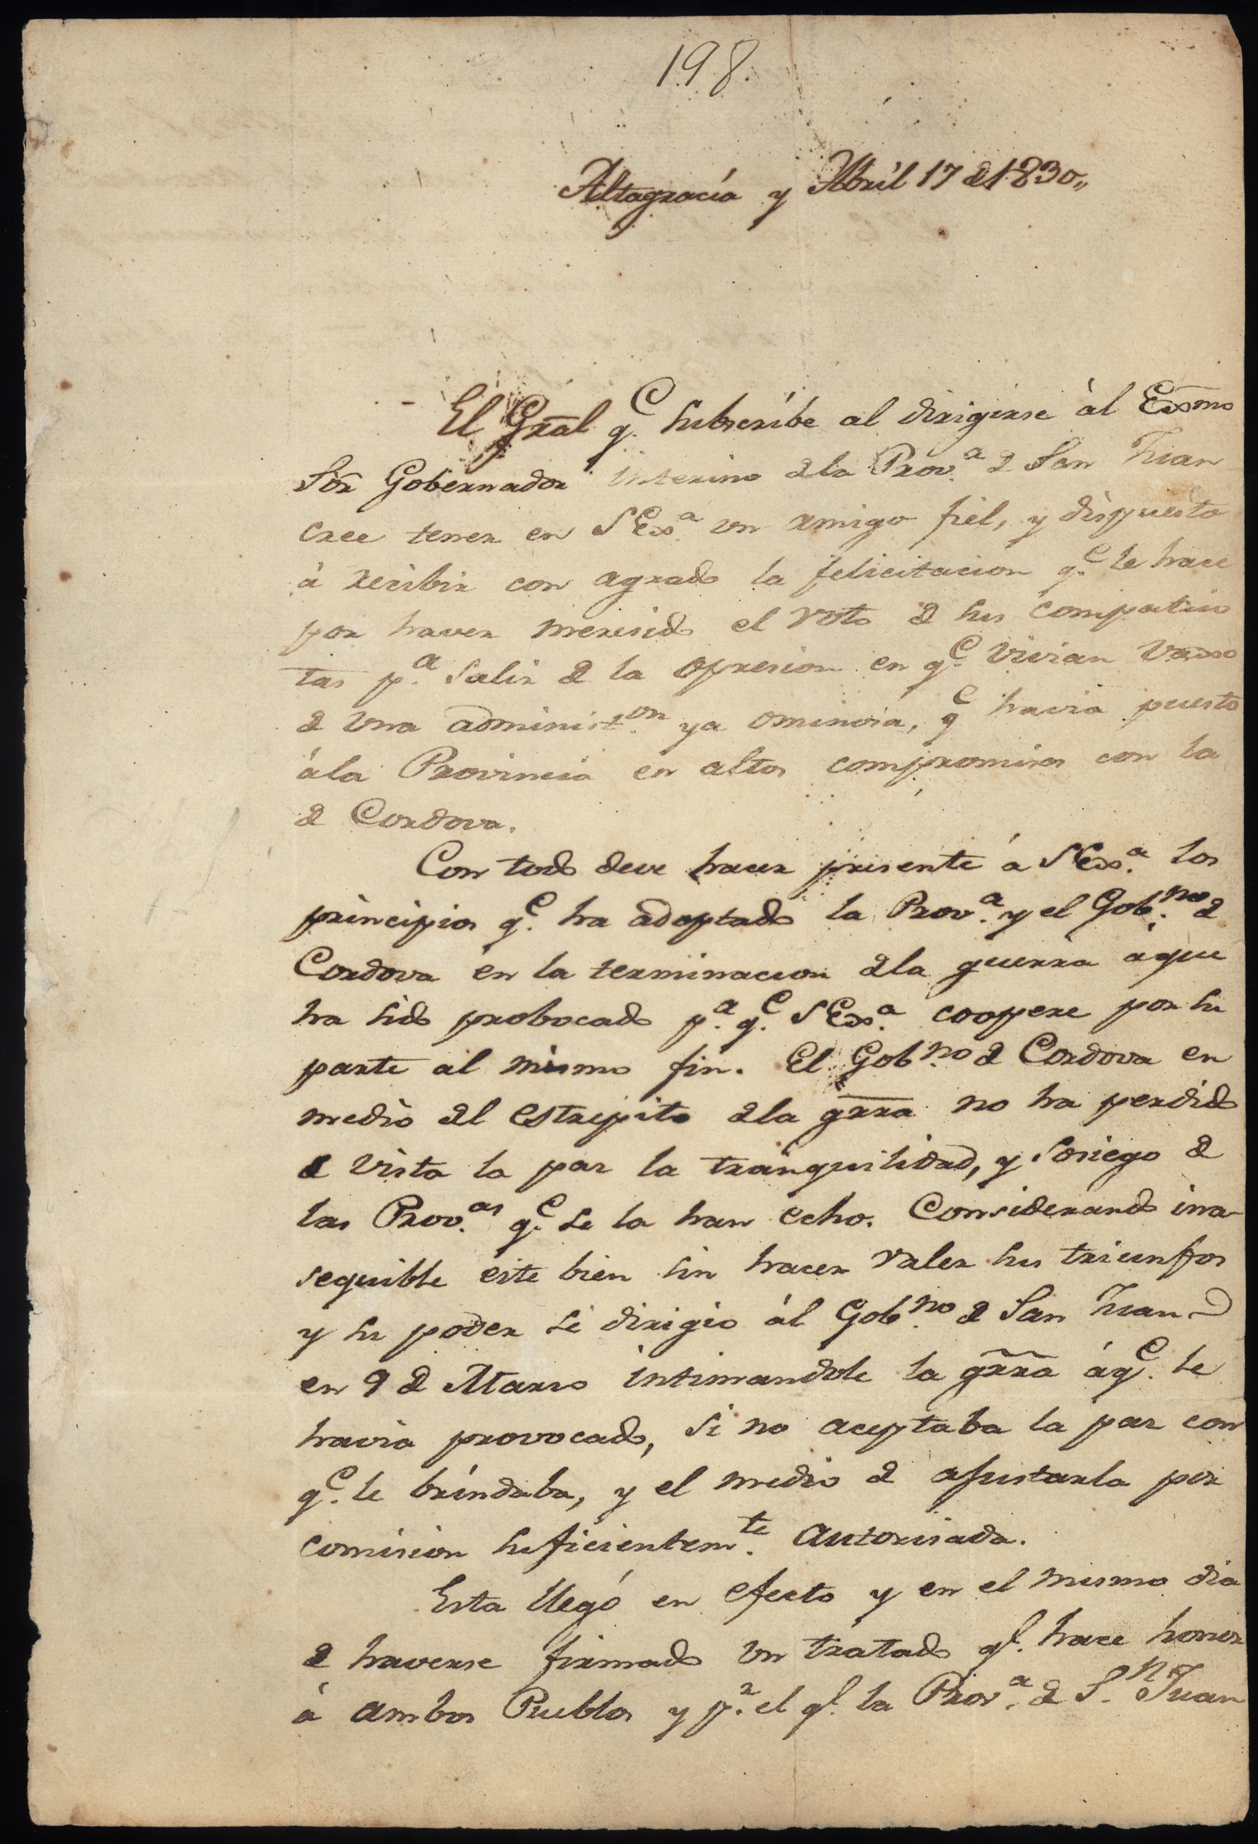 198.
Altagracia y Abril 17 de 1830,,
El Gral q.e subscribe al dirigirse ál Exmo
Sór Gobernador interino dela Prov.a de San Juan
cree tener en S Ex.a un amigo fiel, y dispuesto
á recibir con agrado la felicitacion q.e le hace
por haver merecido el voto de sus compatrio
tas p.a salir de la opresion en q.e vivian vaxo
de una administ.on ya ominosa, q.e havia puesto
ála Provincia en altos compromisos con la
de Cordova.
Con todo deve hacer presente á S Ex.a los
principios q.e ha adoptado la Prov.a y el Gob.no de
Cordova en la terminacion dela guerra áque
ha sido probocado p.a q.e S Ex.a coopere por su
parte al mismo fin. El Gob.no de Cordova en
medio del estrepito dela grra no ha perdido
de vista la paz la tranquilidad, y sosiego de
las Prov.as q.e se la han echo. Considerando ina-
sequible este bien sin hacer valer sus triunfos
y su poder se dirigio ál Gob.no de San Juan
en 9 de Marso intimandole la grra áq.e le
havia provocado, si no aceptaba la paz con
q.e le brindaba, y el medio de ajustarla por
comision suficientem.te autorisada.
Esta llegó en efecto y en el mismo dia
de haverse firmado un tratado q.e hace honor
á ambos Pueblos y p.r el q.e la Prov.a de S.n Juan